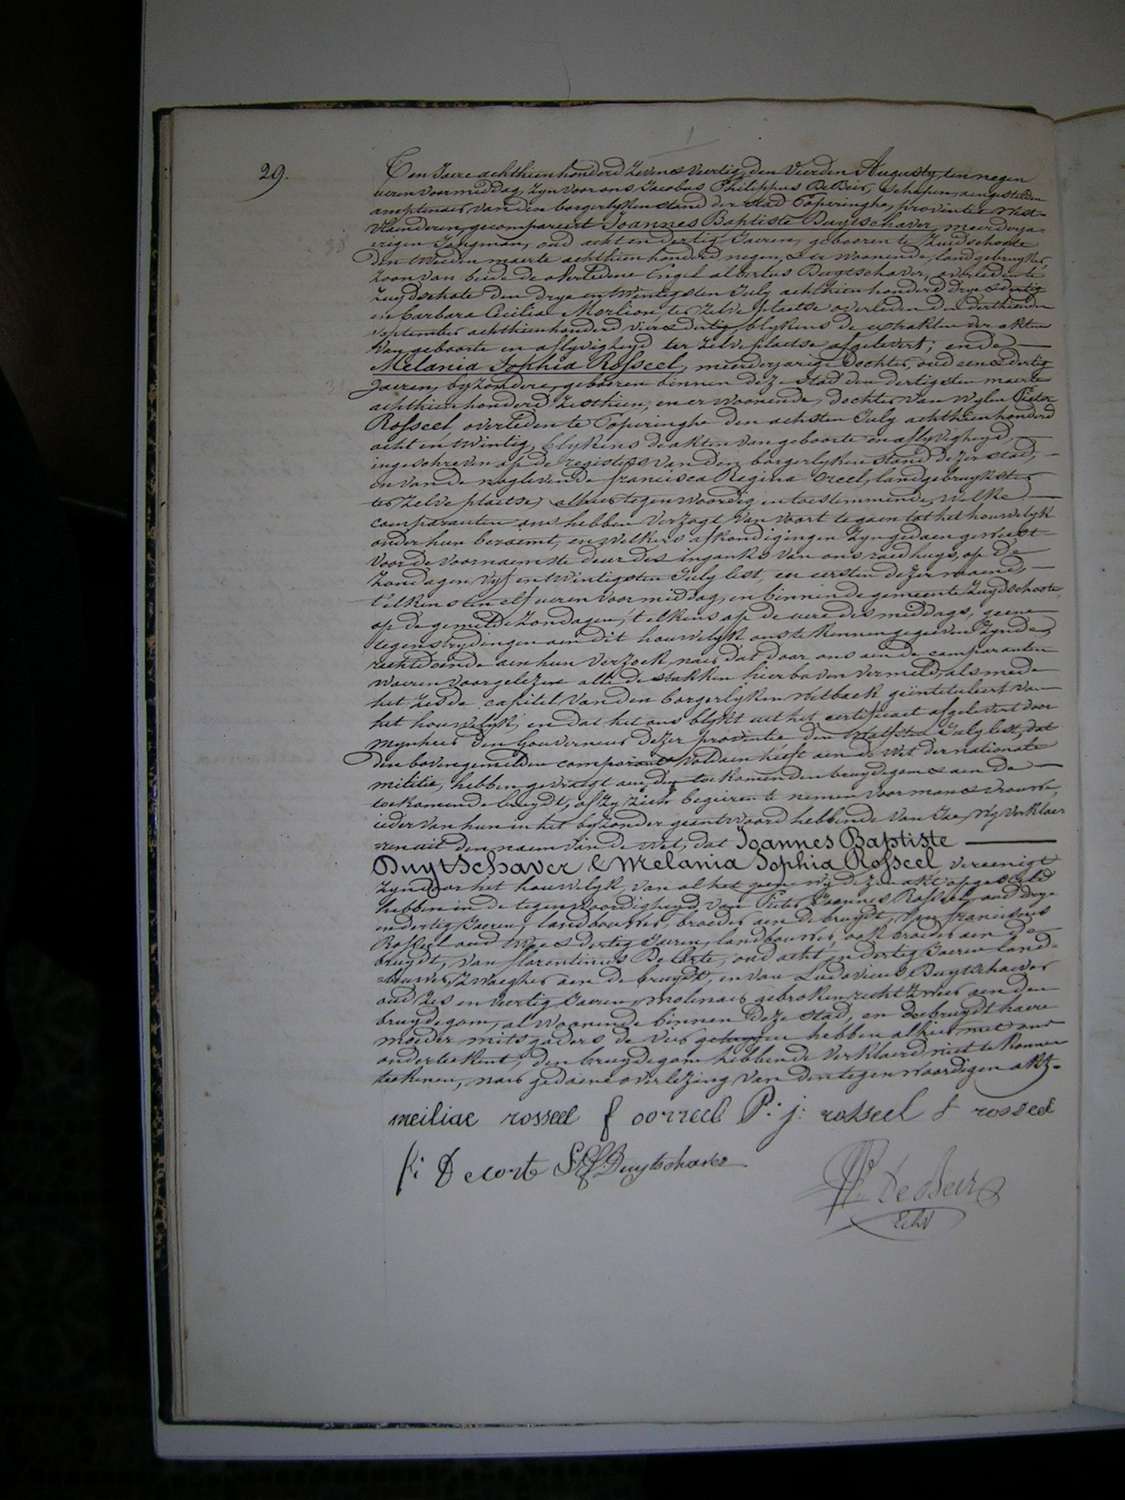 29.
Ten Jaere achthien honderd Zeven & Veertig, den Vierden Augusty, ten negen
ueren voormiddag, zyn voor ons Jacobus Philippus De Beir, Schepen, aengestelden
amptenaer van den borgerlyken stand der stad Poperinghe, provintie West-
Vlaenderen, gecompareert Joannes Baptiste Duytschaver, meerderja-
rigen Jongman, oud acht en dertig Jaeren, gebooren te Zuidschoote
den tweeden maerte achthien honderd negen, & er woonende, landgebruyker,
zoon van beide de overledene Engel Albertus Duytschaver, overleden te
Zuydschote den drye en twintigsten July achthien honderd drye & dertig
en Barbara Cecilia Morlion, ter zelve plaetse overleden den derthienden
september achthien honderd vier & dertig, blykens de extrakten der akten
van geboorte en aflyvigheyd ter zelve plaetse afgelevert; en de
Melania Sophia Rosseel, meerderjarige dochter, oud een & dertig
Jaeren, byzondere, gebooren binnen deze stad den dertigsten maerte
achthien honderd zesthien, en er woonende, dochter van wylen Pieter
Rosseel overleden te Poperinghe den achsten July achthien honderd
acht en twintig, blykens de akten van geboorte en aflyvigheyd,
ingeschreven op de registers van den borgerlyken stand dezer stad,
en van de nogleven de francisca Regina Oreel, landgebruykster
ter zelve plaetse, alhier tegenwoordig en toestemmende, welke
comparanten ons hebben verzogt van voort te gaen tot het houwelyk
onder hun beraemt, en welkers afkondigingen zyn gedaen geweest
voor de voornaemste deur des ingangks van ons raedhuys, op de
Zondagen vyf en twintigsten July lest, en eersten dezer maend,
telkens ten elf ueren voormiddag, en binnen de gemeente Zuydschoote,
op de gemelde zondagen, telkens op de uere des middags, geene
tegenstrydingen aen dit houwelyk ons te kennen gegeven zynde,
rechtdoende aen hun verzoek, naer dat door ons aen de comparanten
waeren voorgelezen alle de stukken hierboven vermeld, als mede
het zesde capitel van den borgerlyken wetboek geïntituleert van
het houwelyk; en dat het ons blykt uit het certificaet afgelevert door
mynheer den Gouverneur dezer provintie den twalfsten July lest, dat
den bovengemelden comparant voldaen heeft aen de wet der nationale
militie, hebben gevraegt aen den toekomenden bruydegom & aen de
toekomende bruydt, of zy zich begeiren te nemen voor man & vrouwe,
ieder van hun in het byzonder geantwoord hebbende van Jae, wy verklaer
ren uit den naem van de wet, dat Joannes Baptiste
Duytschaver & Melania Sophia Rosseel, vereenigt
zyn door het houwelyk, van al het gene wy deze akt opgesteld
hebben in de tegenwoordigheyd van Pieter Joannes Rosseel, oud drye
en dertig Jaeren, landbouwer, broeder aen de bruydt, van franciscus
Rosseel oud twee & dertig Jaeren, landbouwer, ook broeder aen de
bruydt, van florentinus De Corte, oud acht en dertig Jaeren land-
bouwer, zwaegher aen de bruydt, en van Ludovicus Duytschaever
oud zes en veertig Jaeren, molenaer gebroken rechtzweer aen den
bruydegom, al woonende binnen deze stad, en de bruydt haere
moeder mitsgaders de vier getuygen hebben alhier met ons
onderteekent; den bruydegom hebbende verklaerd niet te konnen
teekenen, naer gedaene overlezing van den tegenwoordigen akt.
meiliae rosseel f oorreel P: j: rosseel f rosseel
f: Decorte L Duytschaver
JP. De Beir
Sch.